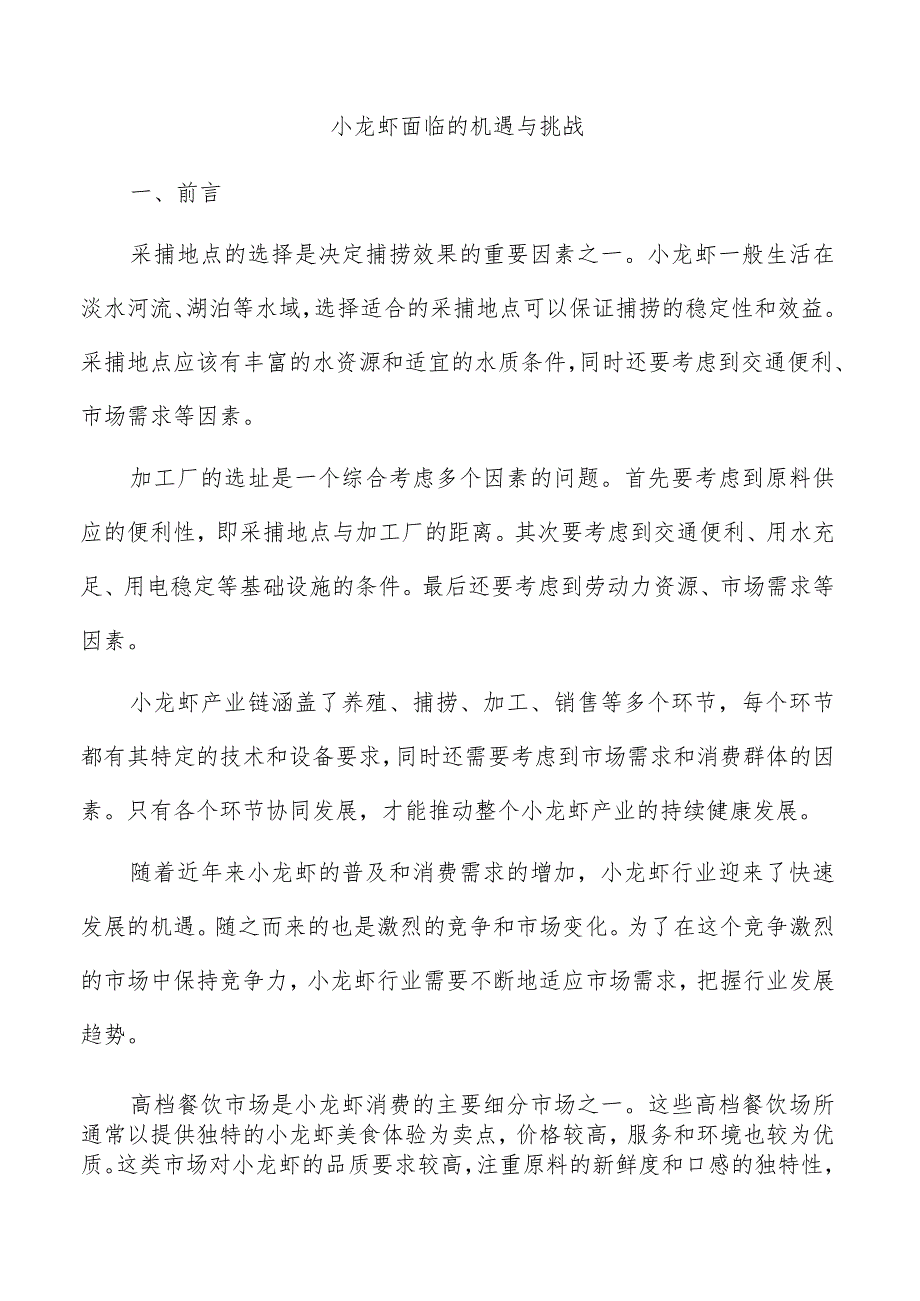 小龙虾面临的机遇与挑战
一、前言
采捕地点的选择是决定捕捞效果的重要因素之一。小龙虾一般生活在
淡水河流、湖泊等水域，选择适合的采捕地点可以保证捕捞的稳定性和效益。
采捕地点应该有丰富的水资源和适宜的水质条件，同时还要考虑到交通便利、
市场需求等因素。
加工厂的选址是一个综合考虑多个因素的问题。首先要考虑到原料供
应的便利性，即采捕地点与加工厂的距离。其次要考虑到交通便利、用水充
足、用电稳定等基础设施的条件。最后还要考虑到劳动力资源、市场需求等
因素。
小龙虾产业链涵盖了养殖、捕捞、加工、销售等多个环节，每个环节
都有其特定的技术和设备要求，同时还需要考虑到市场需求和消费群体的因
素。只有各个环节协同发展，才能推动整个小龙虾产业的持续健康发展。
随着近年来小龙虾的普及和消费需求的增加，小龙虾行业迎来了快速
发展的机遇。随之而来的也是激烈的竞争和市场变化。为了在这个竞争激烈
的市场中保持竞争力，小龙虾行业需要不断地适应市场需求，把握行业发展
趋势。
高档餐饮市场是小龙虾消费的主要细分市场之一。这些高档餐饮场所
通常以提供独特的小龙虾美食体验为卖点，价格较高，服务和环境也较为优
质。这类市场对小龙虾的品质要求较高，注重原料的新鲜度和口感的独特性，